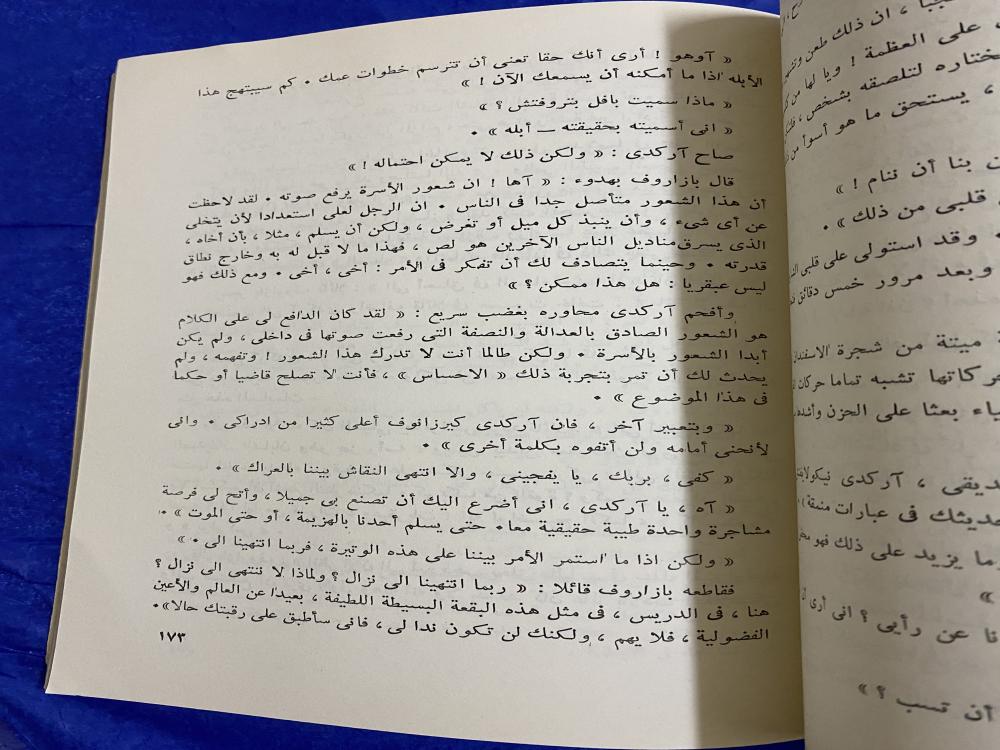 « آوهو ! أرى أنك حقا تعنى أن تترسم خطوات عمك • كم سيبتهج هذا
الأبله اذا ما أمكنه أن يسمعك الآن ! »
« ماذا سميت بافل بتروفتش ؟ »
« انى أسميته بحقيقته ــ أبله » •
صاح آركدى : « ولكن ذلك لا يمكن احتماله ! »
قال بازاروف بهدوء : « آها ! ان شعور الأسرة يرفع صوته • لقد لاحظت
أن هذا الشعور متأصل جدا فى الناس • ان الرجل لعلى استعدادا لأن يتخلى
عن أى شىء ، وأن ينبذ كل ميل أو تغرض ، ولكن أن يسلم ، مثلا ، بأن أخاه ،
الذى يسرق مناديل الناس الآخرين هو لص ، فهذا ما لا قبل له به وخارج نطاق
قدرته • وحينما يتصادف لك أن تفكر فى الأمر : أخى ، أخى • ومع ذلك فهو
ليس عبقريا : هل هذا ممكن ؟ »
وأفحم آركدى محاوره بغضب سريع : « لقد كان الدافع لى على الكلام
هو الشعور الصادق بالعدالة والنصفة التى رفعت صوتها فى داخلى ، ولم يكن
أبدا الشعور بالأسرة • ولكن طالما أنت لا تدرك هذا الشعور ! وتفهمه ، ولم
يحدث لك أن تمر بتجربة ذلك « الاحساس » ، فأنت لا تصلح قاضيا أو حكما
فى هذا الموضوع » •
« وبتعبير آخر ، فان آركدى كيرزانوف أعلى كثيرا من ادراكى • وانى
لأنحنى أمامه ولن أتفوه بكلمة أخرى » •
« كفى ، بربك ، يا يفجينى ، والا انتهى النقاش بيننا بالعراك » •
« آه ، يا آركدى ، انى أضرع اليك أن تصنع بى جميلا ، وأتح لى فرصة
مشاجرة واحدة طيبة حقيقية معا• حتى يسلم أحدنا بالهزيمة ، أو حتى الموت » •
« ولكن اذا ما استمر الأمر بيننا على هذه الوتيرة ، فربما انتهينا الى • »
فقاطعه بازاروف قائلا : « ربما انتهينا الى نزال ؟ ولماذا لا ننتهى الى نزال ؟
هنا ، فى الدريس ، فى مثل هذه البقعة البسيطة اللطيفة ، بعيدا عن العالم والأعين
الفضولية ، فلا يهم ، ولكنك لن تكون ندا لى ، فانى سأطبق على رقبتك حالا »•
١٧٣
، ان ذلك طعن
على العظمة ! ويا لها من
لتلصقه بشخص ،
، يستحق ما هو أسوأ من
بنا أن ننام ! »
قلبى من ذلك » •
• وقد استولى على قلبى
وبعد مرور خمس دقائق
ميتة من شجرة
تشبه تماما حركات
بعثا على الحزن
، آركدى
فى عبارات منمقة »
يزيد على ذلك فهو
»
عن رأيى ؟ انى أرى
أن تسب ؟ »